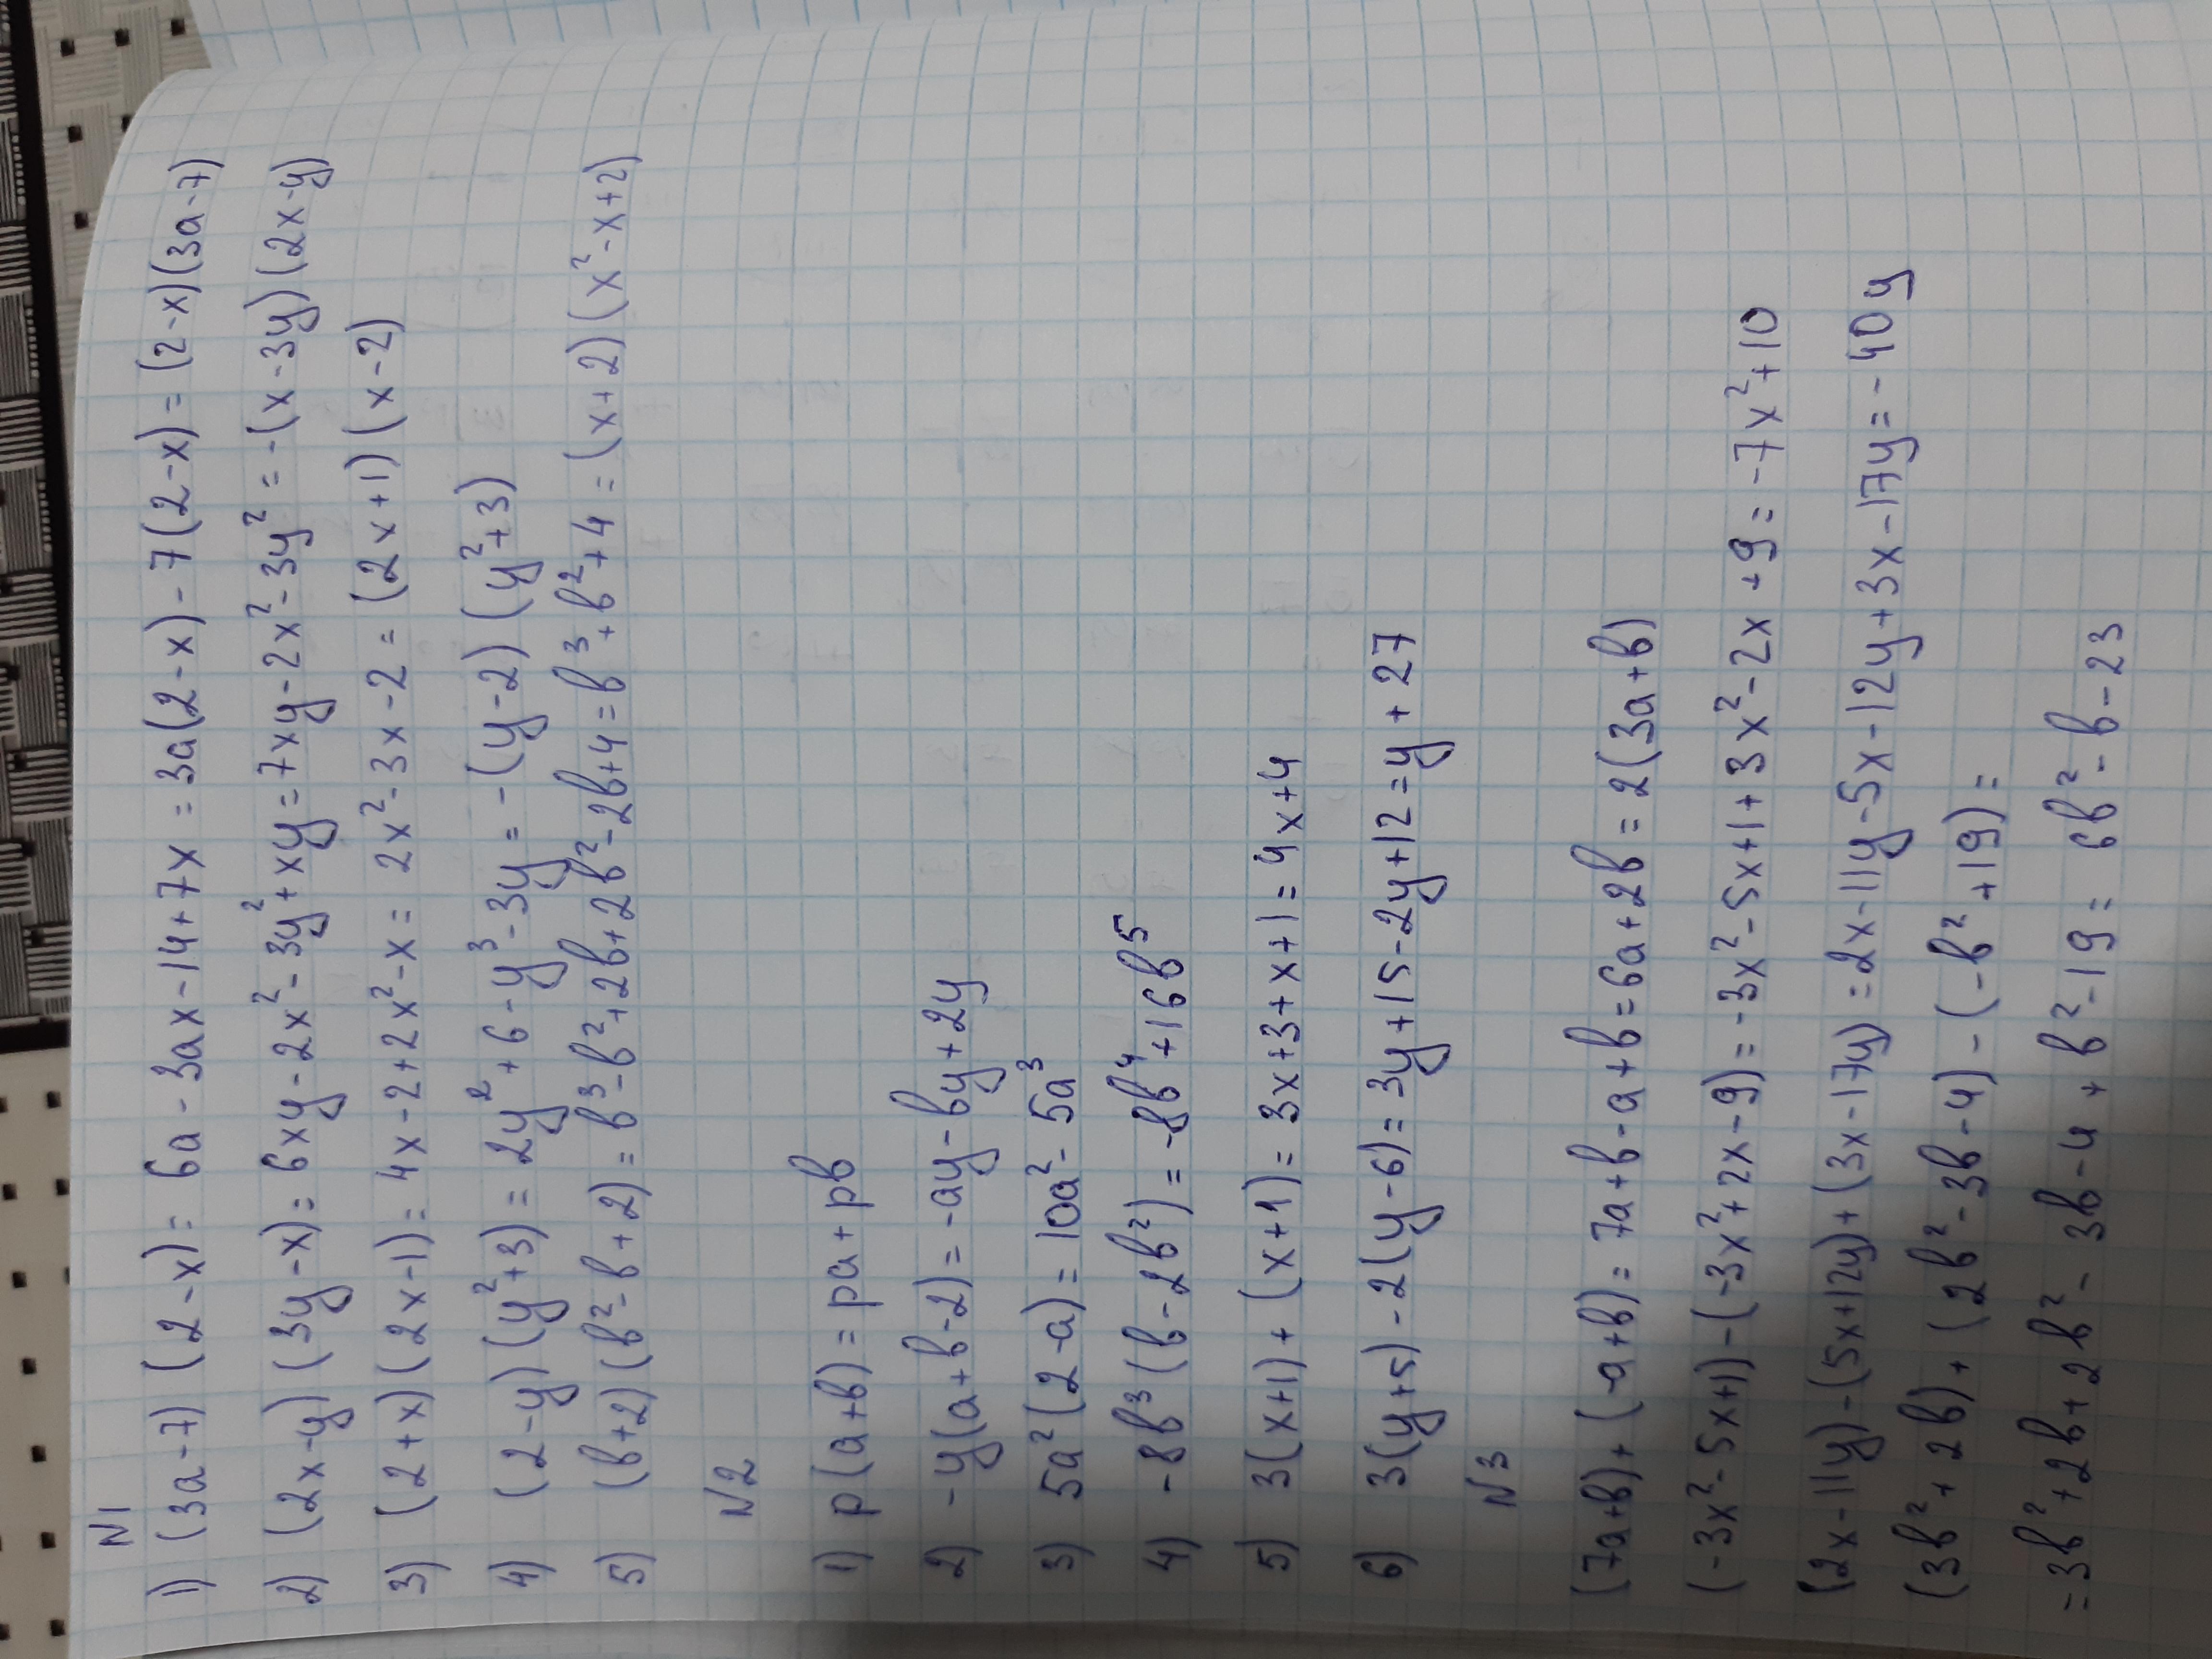 N1
1) (3a-7)(2-x)= 6a-3ax-14+7x=3a(2-x)-7(2-x)=(2-x)(3a-7)
2) (2x-y)(3y-x)= 6xy-2x²-3y²+xy=7xy-2x²-3y²=-(x-3y)(2x-y)
3) (2+x)(2x-1)= 4x-2+2x²-x= 2x²-3x-2=(2x+1)(x-2)
4) (2-y)(y²+3)=2y²+6-y³-3y=-(y-2)(y²+3)
5) (b+2)(b²-b+2)=b³-b²+2b+2b²-2b+4=b³+b²+4=(x+2)(x²-x+2)
N2
1) p(a+b)=pa+pb
2) -y(a+b-2)=-ay-by+2y
3) 5a²(2-a)=10a²-5a³
4) -8b³(b-2b²)=-8b⁴+16b⁵
5) 3(x+1)+(x+1)=3x+3+x+1=4x+4
6) 3(y+5)-2(y-6)=3y+15-2y+12=y+27
N3
(7a+b)+(-a+b)=7a+b-a+b=6a+2b=2(3a+b)
(-3x²-5x+1)-(-3x²+2x-9)=-3x²-5x+1+3x²-2x+9=-7x²+10
(2x-11y)-(5x+12y)+(3x-17y)=2x-11y-5x-12y+3x-17y=-40y
(3b²+2b)+(2b²-3b-4)-(-b²+19)=
=3b²+2b+2b²-3b-4+b²-19=6b²-b-23